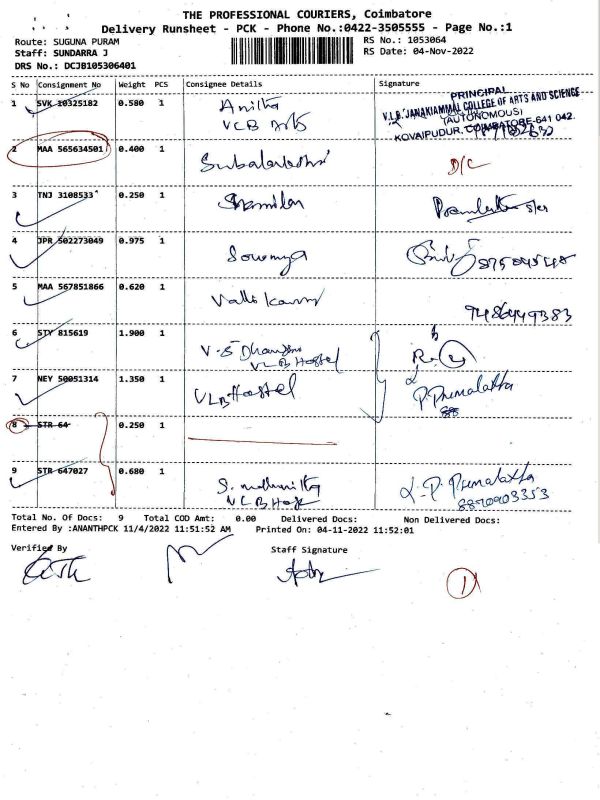 THE PROFESSIONAL COURIERS, Coimbatore
Delivery Runsheet - PCK - Phone No.:0422-3505555 - Page No.:1
Route: SUGUNA PURAM
RS No.: 1053064
Staff: SUNDARRA J
RS Date: 04-Nov-2022
DRS No.: DCJB105306401
S No Consignment No Weight PCS Consignee Details Signature
1 SVK 10325182 0.580 1 Anitha
VLB Arts
PRINCIPAL
V.L.B. JANAKIAMMAL COLLEGE OF ARTS AND SCIENCE
(AUTONOMOUS)
KOVAIPUDUR, COIMBATORE-641 042.
2 MAA 565634501 0.400 1 D/C
3 TNJ 3108533 0.250 1
4 JPR 502273049 0.975 1 Sowmya
5 MAA 567851866 0.620 1
9486449383
6 STY 815619 1.900 1
VLB Hostel
7 NEY 50051314 1.350 1 VLB Hostel P. Premalatha
8 STR 64 0.250 1
9 STR 647027 0.680 1 P. Premalatha
8870903353
Total No. Of Docs: 9 Total COD Amt: 0.00 Delivered Docs: Non Delivered Docs:
Entered By :ANANTHPCK 11/4/2022 11:51:52 AM Printed On: 04-11-2022 11:52:01
Verified By
Staff Signature
1